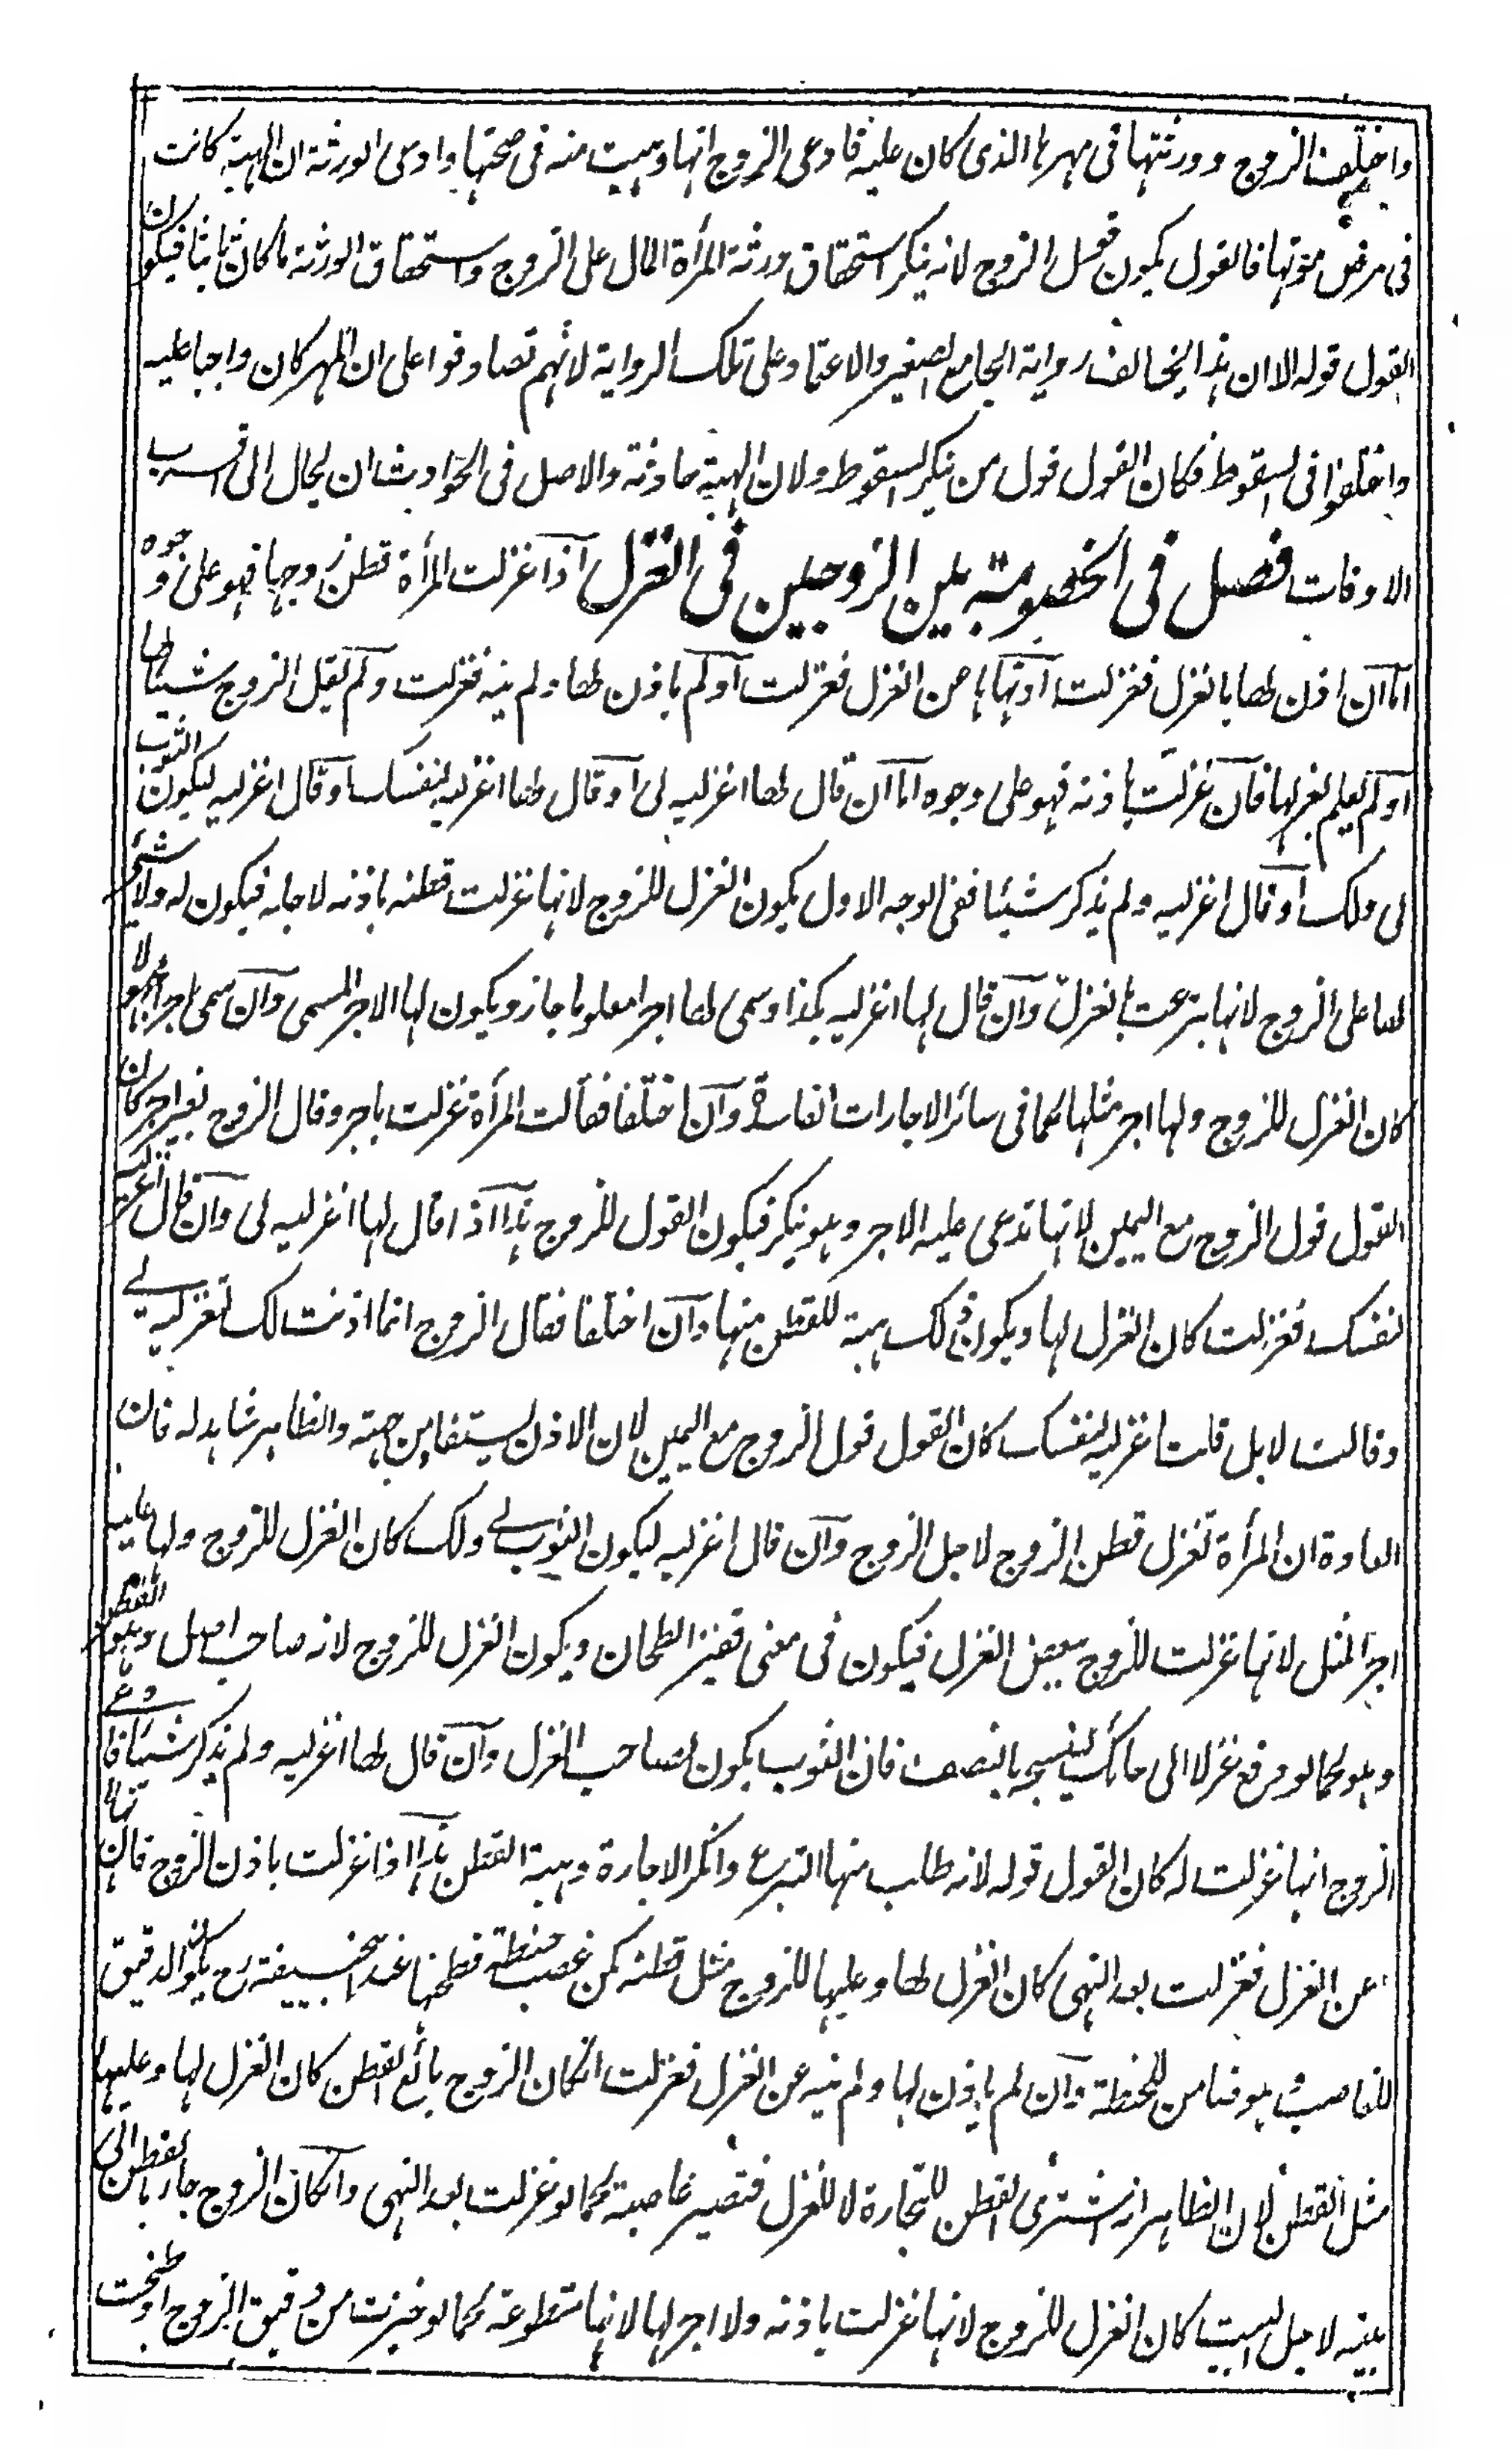 واختلف الزوج وورثتها في مهرها الذي كان عليه فادعى الزوج انها وهبت منه في صحتها وادعى الورثة ان الهبة كانت
في مرض موتها فالقول يكون قول الزوج لانه ينكر استحقاق ورثة المرأة المال على الزوج واستحقاق الورثة ما كان ثابتا فيكون
القول قوله الا ان هذا يخالف رواية الجامع الصغير والاعتماد على تلك الرواية لانهم تصادقوا على ان المهر كان واجبا عليه
واختلفوا في السقوط فكان القول قول من ينكر السقوط ولان الهبة حادثة والاصل في الحوادث ان يحال الى اقرب
الاوقات فصل في الخصومة بين الزوجين في الغزل اذا غزلت المرأة قطن زوجها فهو على وجوه
اما ان اذن لها بالغزل فغزلت او نهاها عن الغزل فغزلت او لم ياذن لها ولم ينه فغزلت ولم يقل الزوج شيئا لها
او لم يعلم بغزلها فان غزلت باذنه فهو على وجوه اما ان قال لها اغزليه لي او قال لها اغزليه لنفسك او قال اغزليه ليكون الثوب
لي ولك او قال اغزليه ولم يذكر شيئا ففي الوجه الاول يكون الغزل للزوج لانها غزلت قطنه باذنه لاجله فيكون له ولا شئ
لها على الزوج لانها تبرعت بالغزل وان قال لها اغزليه بكذا وسمى لها اجرا معلوما جاز ويكون لها الاجر المسمى وان سمى اجرا مجهولا
كان الغزل للزوج ولها اجر مثلها كما في سائر الاجارات الفاسدة وان اختلفا فقالت المرأة غزلت باجر وقال الزوج بغير اجر كان
القول قول الزوج مع اليمين لانها تدعى عليه الاجر وهو ينكر فيكون القول للزوج هذا اذا قال لها اغزليه لي وان قال اغزليه
لنفسك فغزلت كان الغزل لها ويكون ذلك هبة للقطن منها وان اختلفا فقال الزوج انما اذنت لك لتغزليه لي
وقالت لا بل قلت اغزليه لنفسك كان القول قول الزوج مع اليمين لان الاذن يستفاد من جهته والظاهر شاهد له فان
العادة ان المرأة تغزل قطن الزوج لاجل الزوج وان قال اغزليه ليكون الثوب لي ولك كان الغزل للزوج ولها عليه
اجر المثل لانها غزلت للزوج ببعض الغزل فيكون في معنى قفيز الطحان ويكون الغزل للزوج لانه صاحب اصل وهو القطن
وهو كما لو دفع غزلا الى حائك لينسجه بالنصف فان الثوب يكون لصاحب الغزل وان قال لها اغزليه ولم يذكر شيئا فادعى
الزوج انها غزلت له كان القول قوله لانه طلب منها التبرع وانكر الاجارة وهبة القطن هذا اذا غزلت باذن الزوج فان نهاها
عن الغزل فغزلت بعد النهي كان الغزل لها وعليها للزوج مثل قطنه كمن غصب حنطة فطحنها عند ابي حنيفة رح يكون الدقيق
للغاصب وهو ضامن للحنطة وان لم ياذن لها ولم ينه عن الغزل فغزلت انكان الزوج بائع القطن كان الغزل لها وعليها
مثل القطن لان الظاهر انه اشترى القطن للتجارة لا للغزل فتصير غاصبة كما لو غزلت بعد النهي وانكان الزوج جاء بالقطن الى
بيته لاجل البيت كان الغزل للزوج لانها غزلت باذنه ولا اجر لها لانها متطوعة كما لو خبزت من دقيق الزوج او طبخت